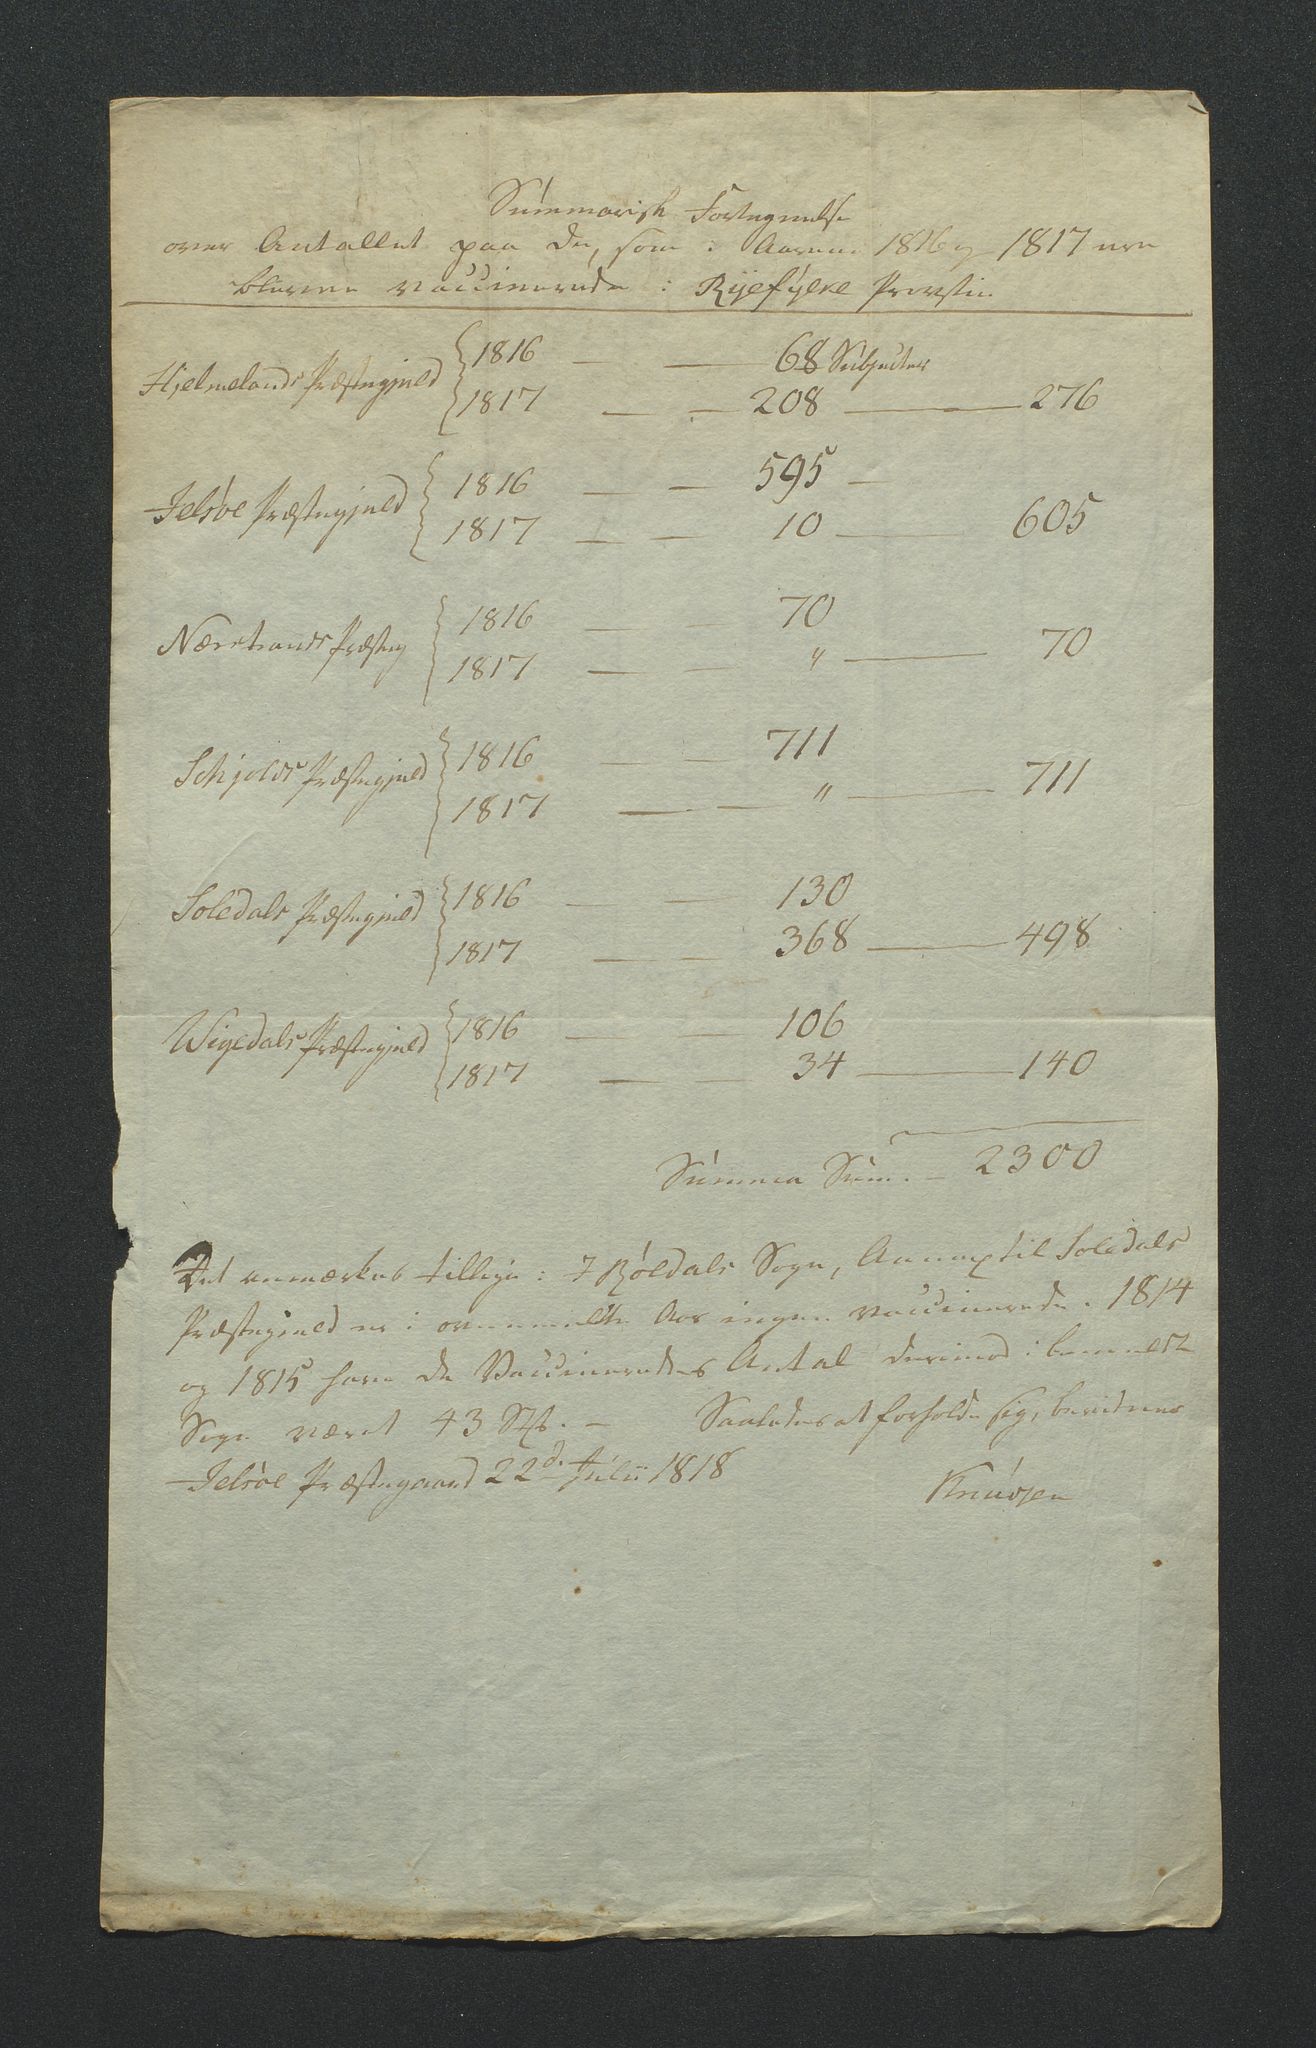 Summarisk Fortegnelse
over Antallet paa de, som i Aarene 1816 og 1817 ere
blevne vaccinerede i Ryefylke Provstie
Hjelmelands Præstegjeld { 1816 — — 68 Subjecter
1817 — — 208 — 276
Jelsöe Præstegjeld { 1816 — — 595 —
1817 — — 10 — 605
Nærstrands Præsteg { 1816 — — 70
1817 — — " — 70
Schjolds Præstegjeld { 1816 — — 711
1817 — — " — 711
Soledals Præstegjeld { 1816 — — 130
1817 — — 368 — 498
Wigedals Præstegjeld { 1816 — — 106
1817 — — 34 — 140
Summa Sum. — 2300
Det anmærkes tillige: I Röldals Sogn, Annex til Soledals
Præstegjeld er i ovenmeldte Aar ingen vaccinerede. 1814
og 1815 have de Vaccineredes Antal derimod i bemeldte
Sogn været 43 Stk. — Saaledes at forholde sig, bevidner
Jelsöe Præstegaard 22d. Julii 1818
Knudsen